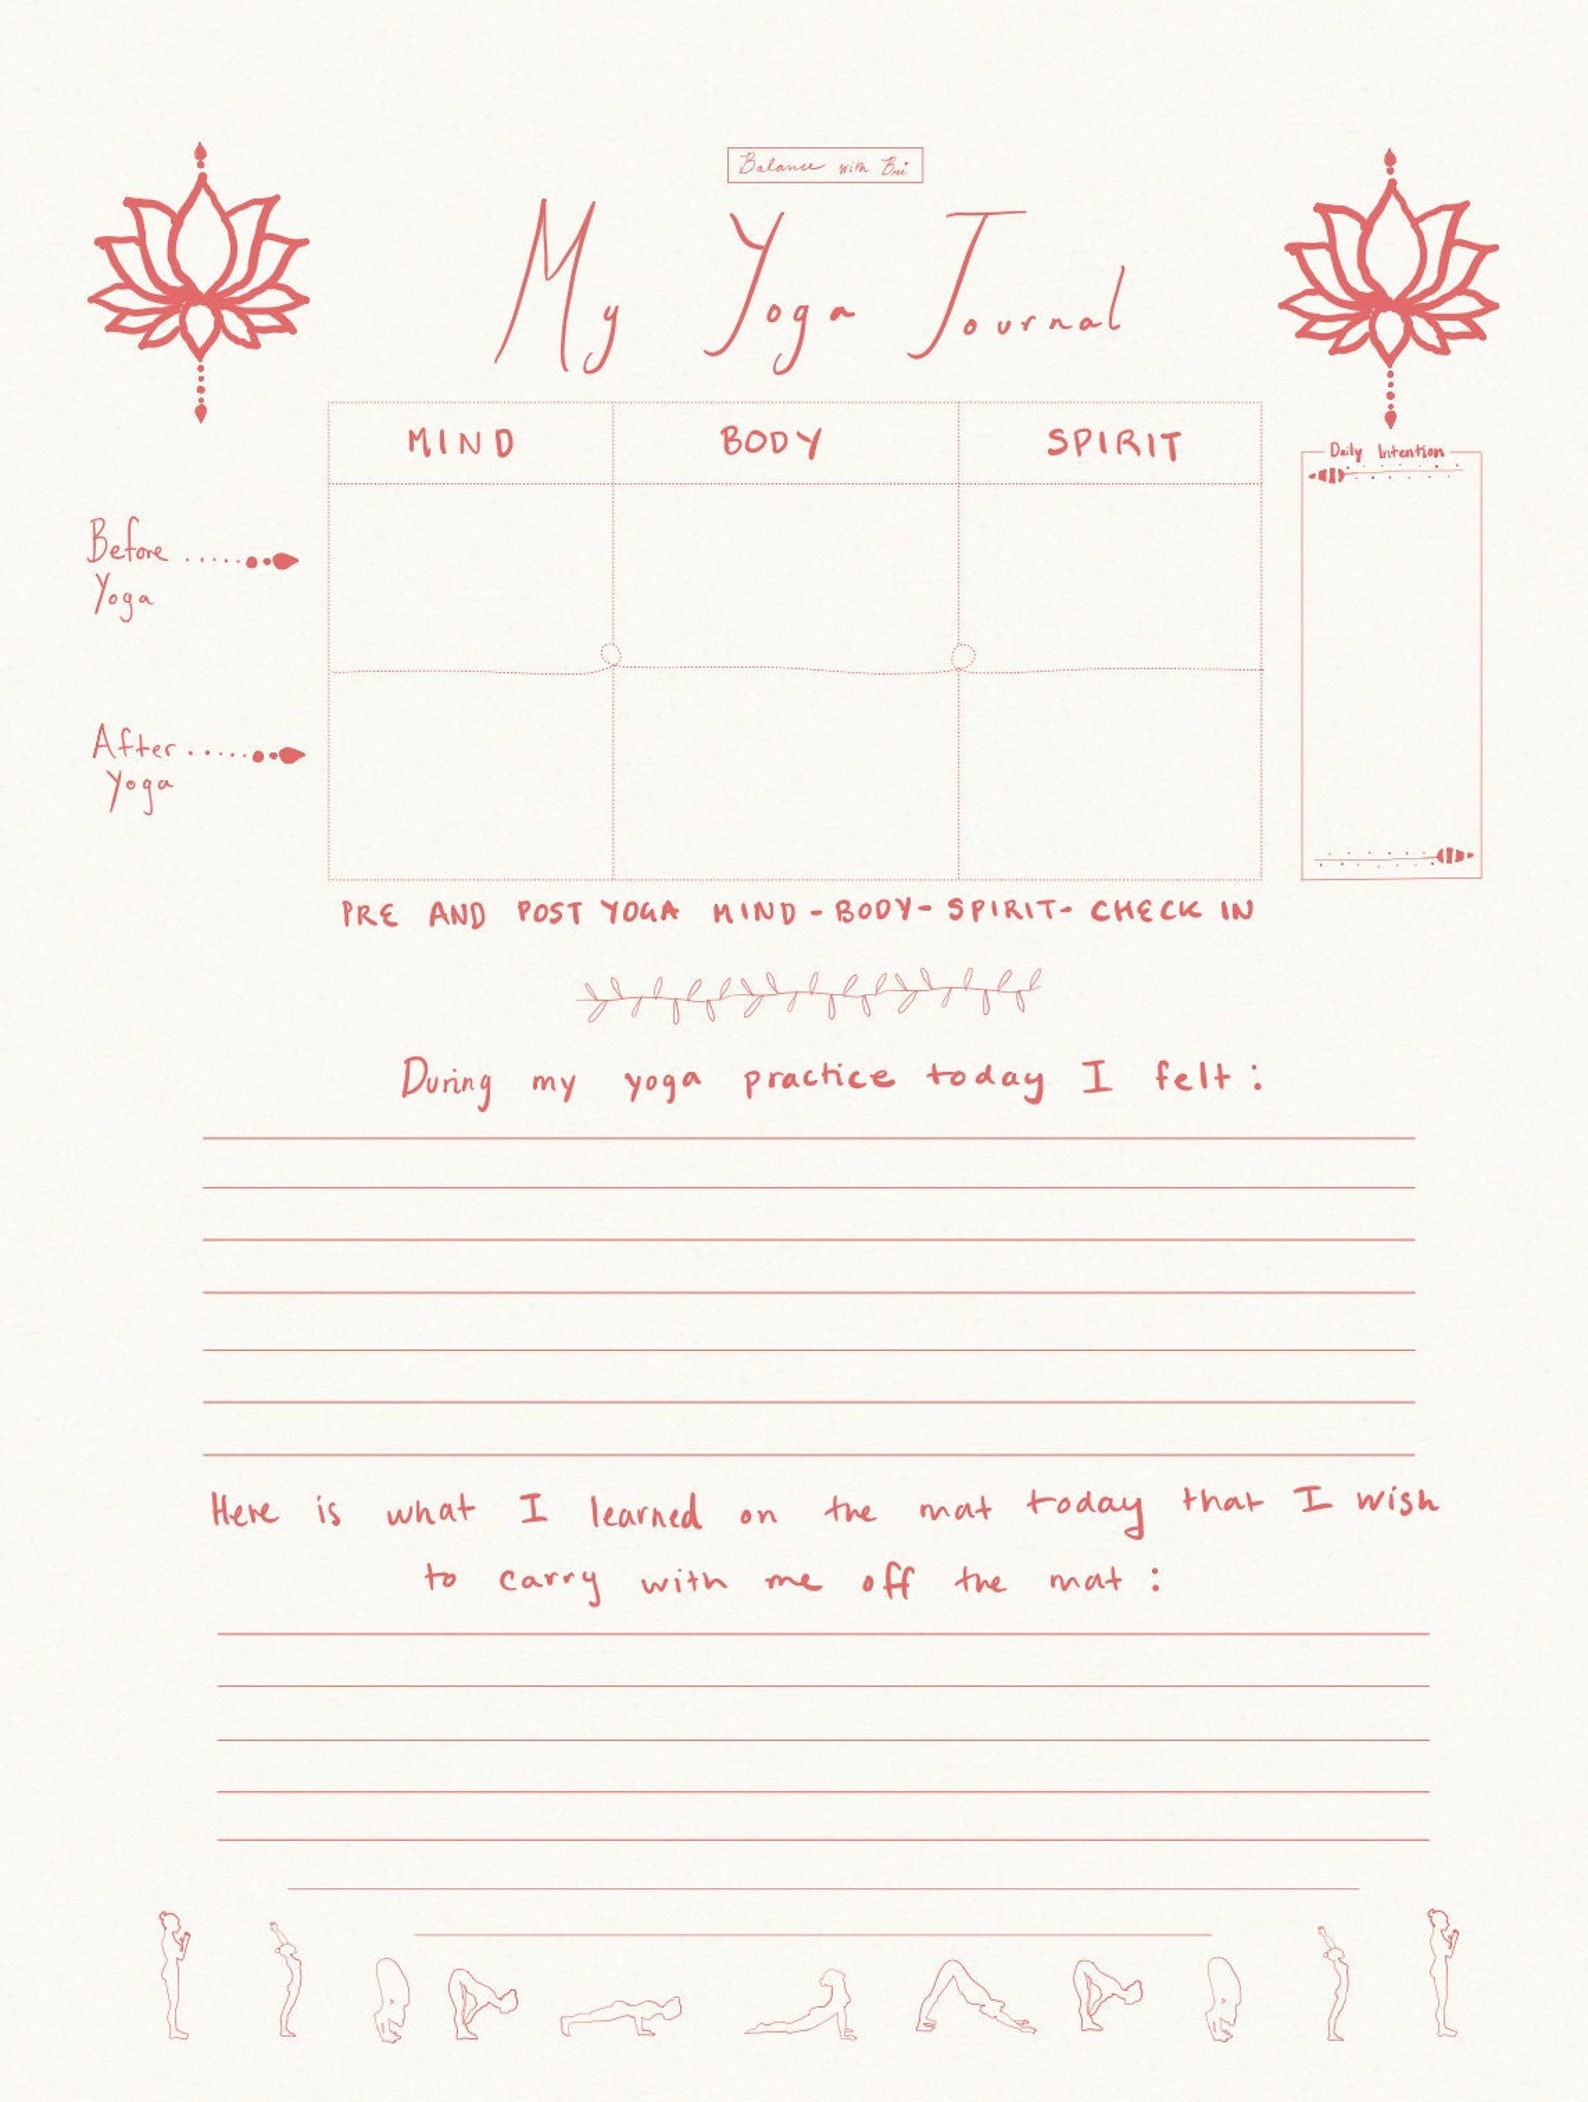 Balance with Bri
My Yoga Journal
MIND BODY SPIRIT
Daily Intention
Before
Yoga
After
Yoga
PRE AND POST YOGA MIND-BODY-SPIRIT- CHECK IN
During my yoga practice today I felt:
Here is what I learned on the mat today that I wish
to carry with me off the mat: